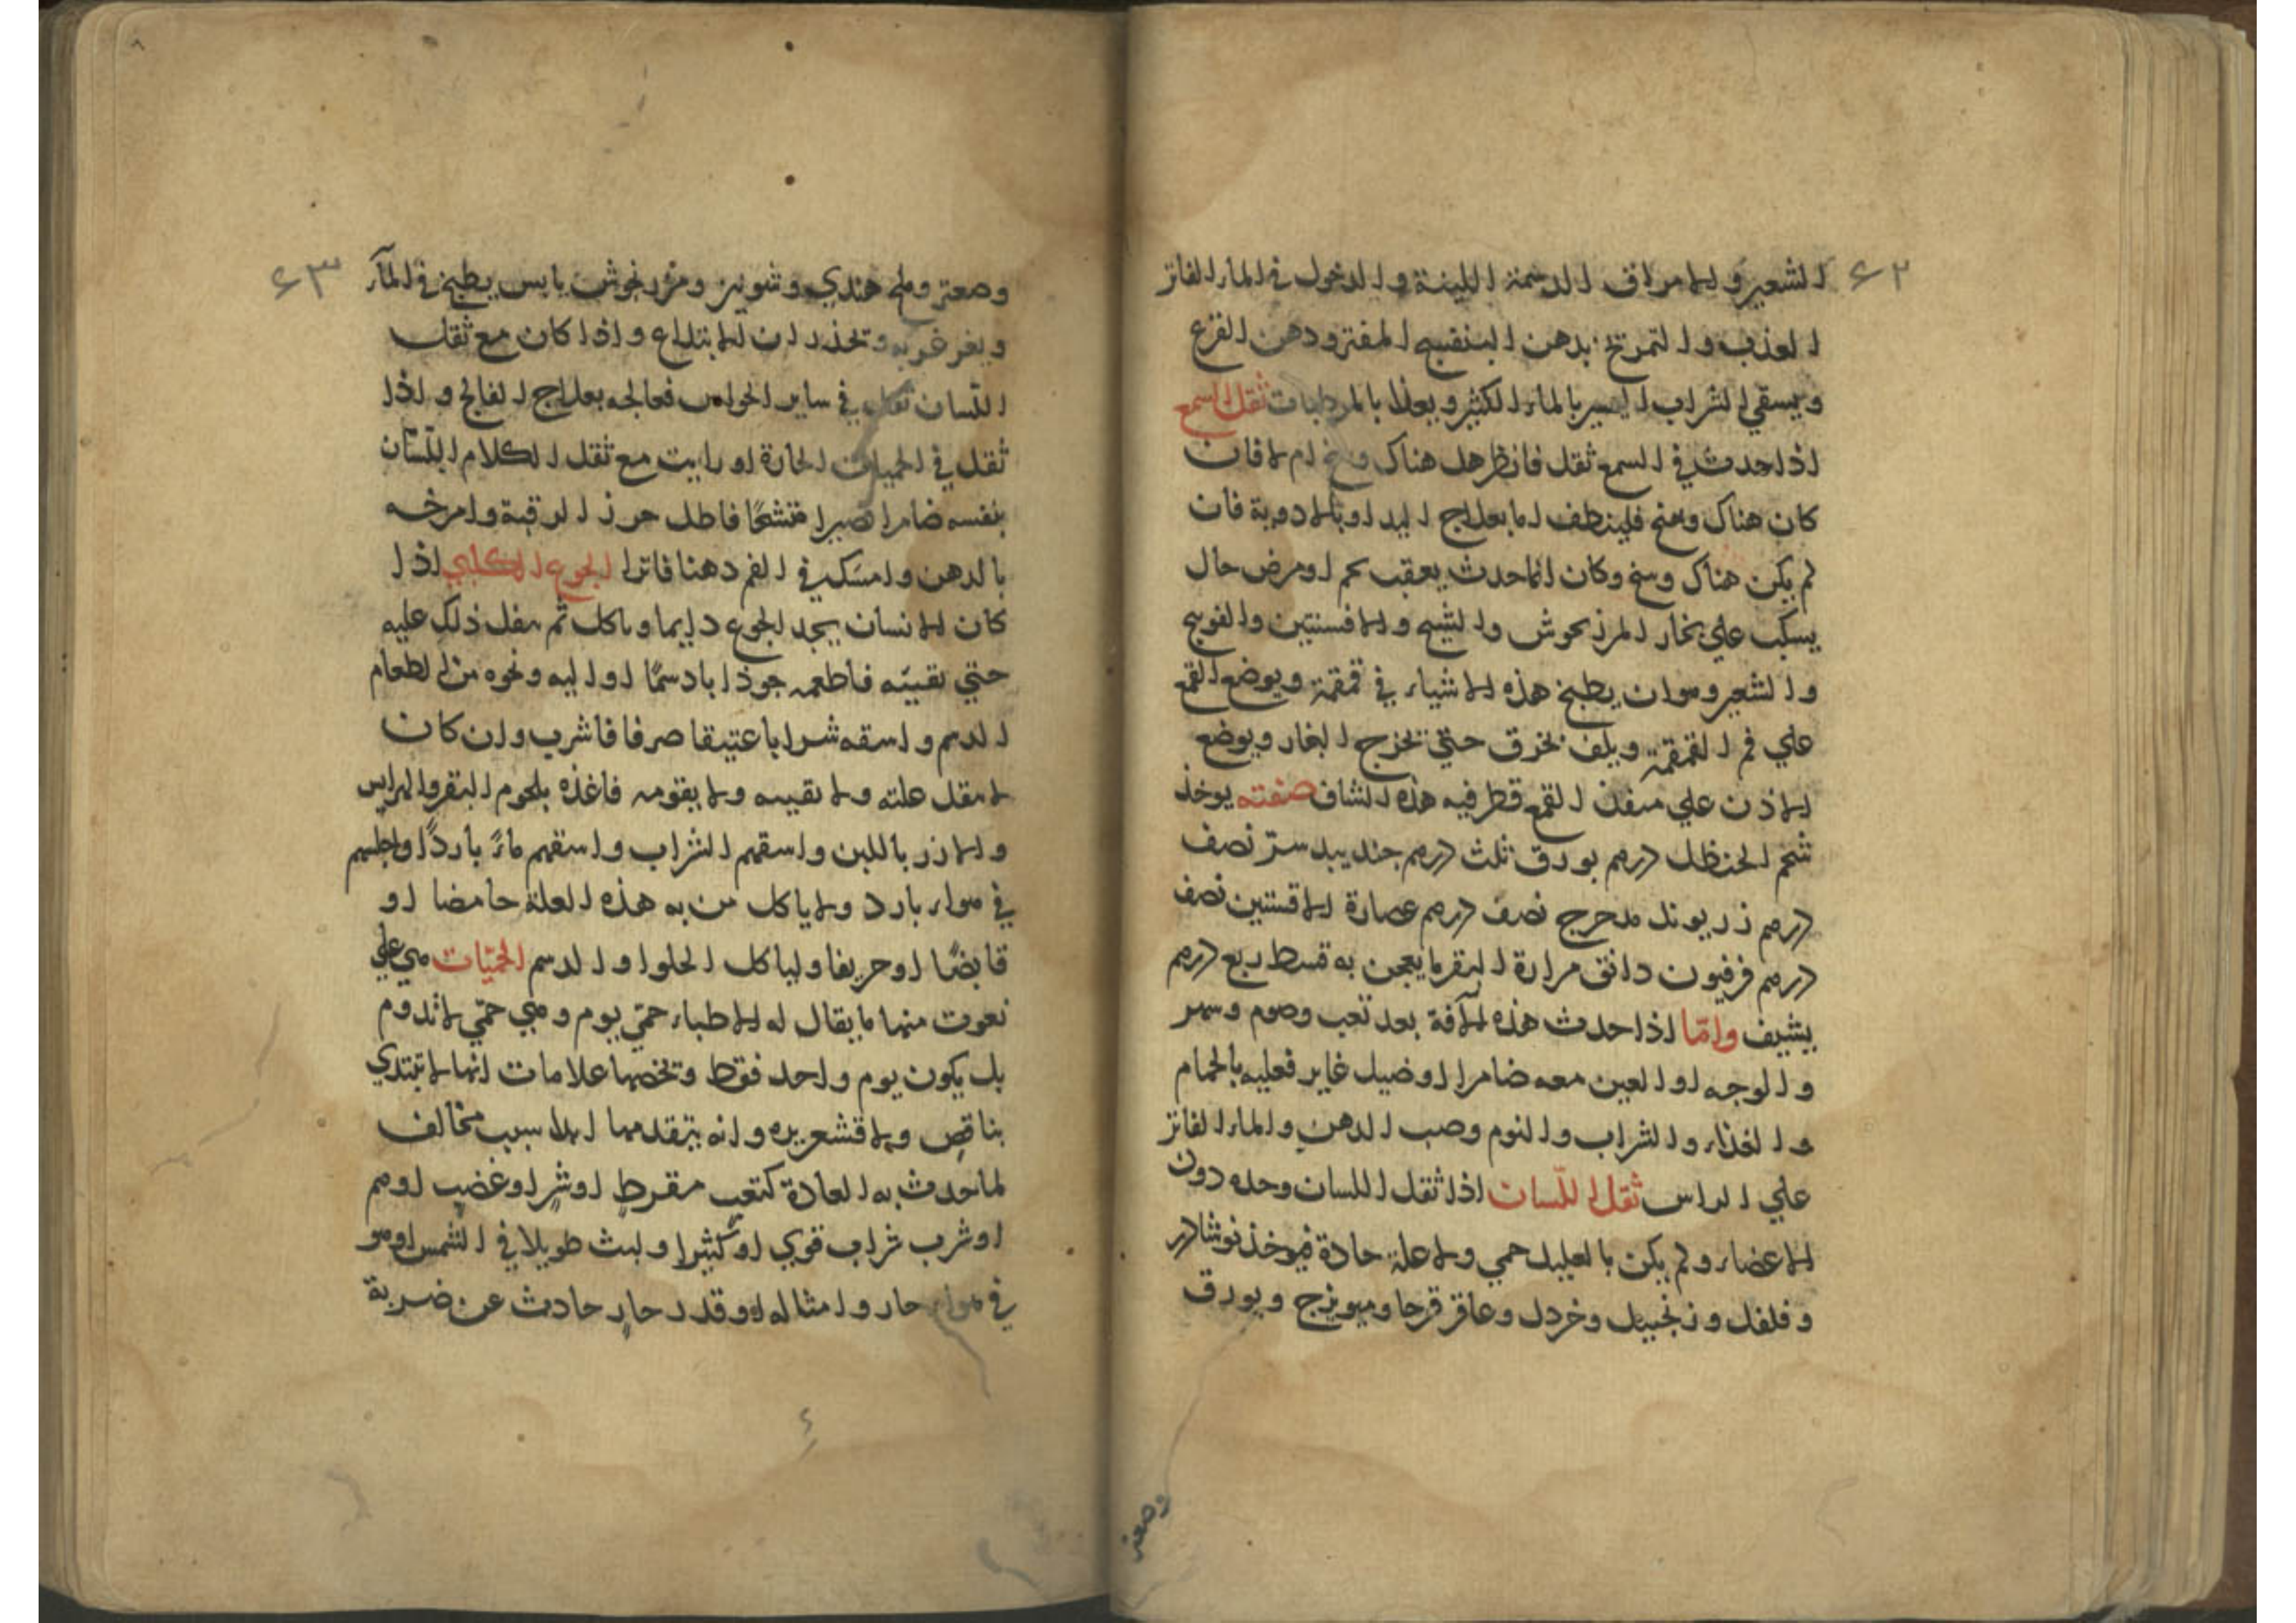 ٤٢
الشعير والامراق الدسمة اللينة والدخول في الماء الفاتر
العذب والتمريخ بدهن البنفسج المفتر ودهن القرع
ويسقي الشراب اليسير بالماء الكثير ويغذا بالمرطبات ثقل السمع
اذا حدث في السمع ثقل فانظر هل هناك وسخ ام لا فان
كان هناك وسخ فلينظف اما بعلاج اليد او بالادوية فان
لم يكن هناك وسخ وكان انما حدث بعقب حمى او مرض حال
يسكب علي بخار المرزنجوش والشيح والافسنتين والفوبنج
والشعير وهو ان يطبخ هذه الاشياء في قمقمة ويوضع القمع
علي فم القمقمة ويلف بخرق حتي يخرج البخار ويوضع
الاذن علي منفذ القمع قطر فيه هذه الشاف صفته يوخذ
شحم الحنظل درهم بورق ثلث درهم جندبيدستر نصف
درهم زريوند مدحرج نصف درهم عصارة الافسنتين نصف
درهم فرفيون دانق مرارة البقر ما يعجن به قسط ربع درهم
يشيف واما اذا حدث هذه الآفة بعد تعب وصوم وسهر
والوجه او العين معه ضامرا او ضيل غاير فعليه بالحمام
والغذاء والشراب والنوم وصب الدهن والماء الفاتر
علي الراس ثقل اللسان اذا ثقل اللسان وحده دون
الاعضاء ولم يكن بالعليل حمي ولا علة حادة فيوخذ نوشادر
وفلفل وزنجبيل وخردل وعاقر قرحا وميويزج وبورق
وصعتر
٤٣
وصعتر وملح هندي وشونيز ومرزنجوش يابس يطبخ في المآء
ويغرغر به وتحذر ان الابتلاع واذا كان مع ثقل
اللسان ثقل في ساير الحواس فعالجه بعلاج الفالج واذا
ثقل في الحميات الحارة او رايت مع ثقل الكلام اللسان
بنفسه ضامرا قصيرا متشنجا فاطل خرز الرقبة وامرخه
بالدهن وامسك في الفم دهنا فاترا الجوع الكلبي اذا
كان الانسان يجد الجوع دايما وياكل ثم يثقل ذلك عليه
حتي يقيئه فاطعمه جوذابا دسمًا او الية ونحوه من الطعام
الدسم واسقه شرابا عتيقا صرفا فاشرب وان كان
لا يثقل علته ولا يقييه ولا يقومه فاغذه بلحوم البقر والهرايس
والارز باللبن واسقهم الشراب واسقهم ماءً باردًا واجلسهم
في هواء بارد ولا ياكل من به هذه العلة حامضا او
قابضًا او حريفا ولياكل الحلوا والدسم الحميّات هي علي
نعوت منها ما يقال له الاطباء حمّي يوم وهي حمّي لا تدوم
بل يكون يوم واحد فقط وتخصها علامات انها لا تبتدي
بنافض ولا قشعريره وانه يتقدمها ابدا سبب مخالف
لما حدث به العادة كتعب مفرط او شر او غضب او هم
او شرب شراب قوي او كثيرا ولبث طويلا في الشمس او هو
في هواء حار وامثاله او قدر حار حادث عن ضربة